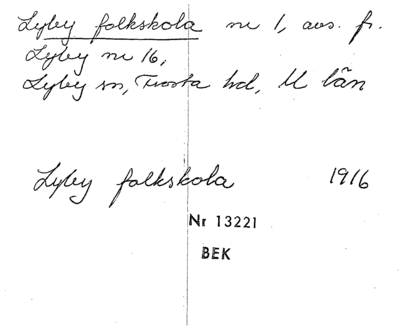 Lyby folkskola nr 1, avs. fr.
Lyby nr 16,
Lyby sn, Frosta hd, M län
Lyby folkskola 1916
Nr 13221
BEK